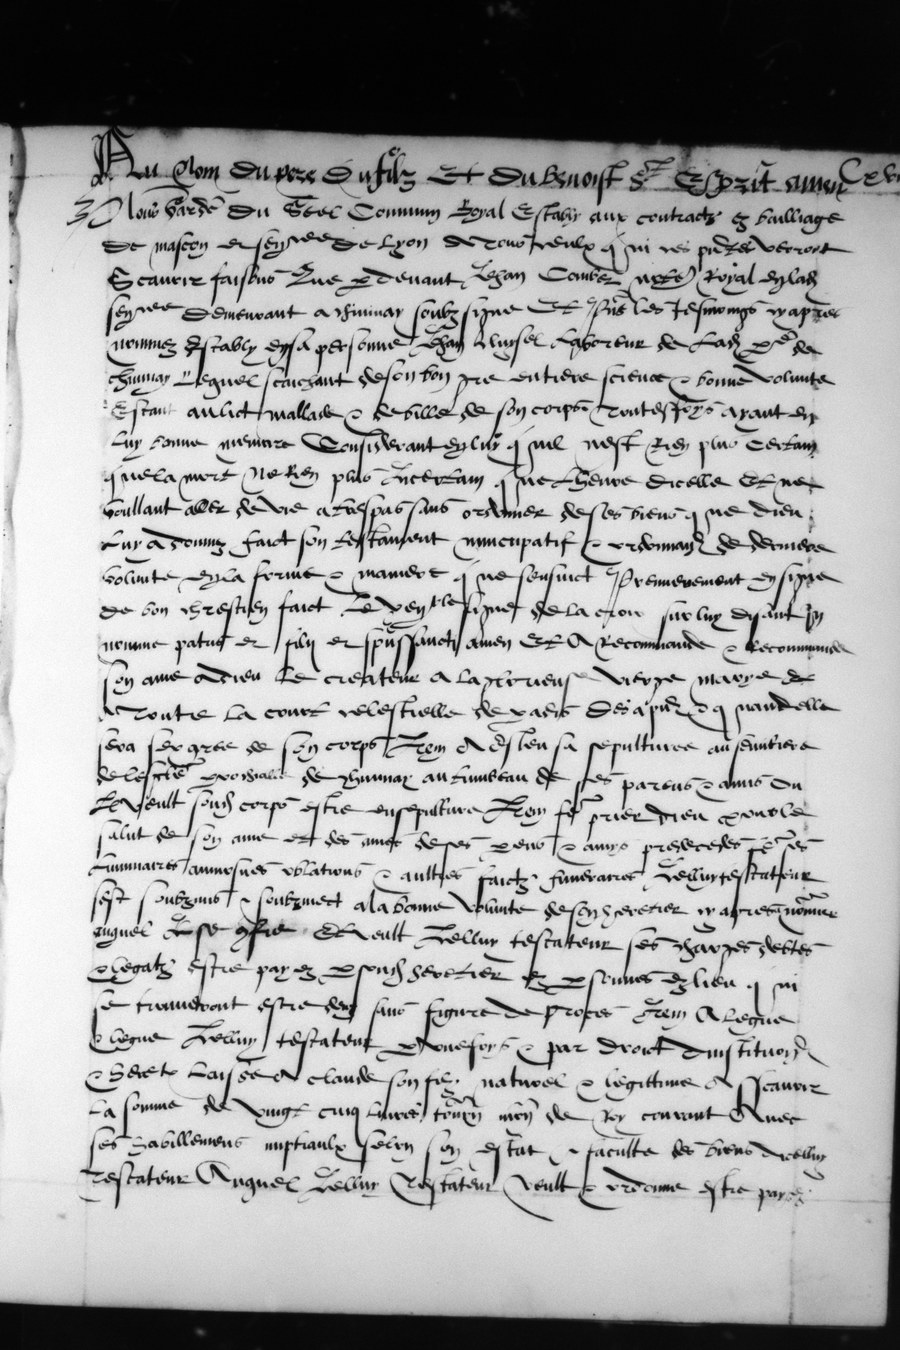 Au Nom du pere Du filz Et du benoist st Esprit amen
Nous Garde du Seel Commun Royal Estably aux contractz es bailliage
de mascon et senncee de Lyon A tous ceulx qui ces pntes verront
Scavoir faisons Que p devant Jehan Combet notre Royal esd
senncee demeurant a soubz signe Et psns les tesmoings cyapres
nommez Estably en sa personne Jehan laboreur de lad de
Lequel scaichant de son bon gre certiere science & bonne volunte
Estant au lict mallade & debille de son corps toutesfoys ayant en
luy bonne memore Considerant en luy quil nest Rien plus Certain
que la mort Ne Rien plus Incertain que lheure dicelle Et ne
voullant aller de vie a trespas sans ordonner de ses biens que dieu
luy a donnez faict son testament nuncupatif & ordonnan de derniere
volunte en la forme & maniere que sensuict Premierement en signe
de bon chrestien faict le signe de la croix sur luy disant In
nomine patris et filii et spus sancti amen Et A Recommande & Recommande
son ame a dieu le createur a la glorieuse vierge marye et
a toutte la court celestielle de paradis Des apnt & quand elle
sera sepqree de son corps Item A esleu sa sepulture au semitiere
de leglise parrochialle de au tumbeau de ses parens & amis Ou
Il Veult sond corps estre ensepulture Item po prier dieu pour le
salut de son ame et des ames de ses pens & amys predecedes ses
luminaires aumosnes oblations & aultres faictz funeraires Icelluy testateur
sest soubzmis & soubzmect a la bonne volunte de son heretier cy apres nomme
auquel Il se confie Et Veult Icelluy testateur ses charges debtes
& legatz estre payez p sond heretier es psonnes & lieu qui
se trouveront estre deuz sans figure de Proces Item A legue
& legue Icelluy testateur p une foys & par droict dinstitution
& heretx Laisse A claude son filz naturel & legittime A scavoir
La somme de vingt cinq livres tourn de Roy courant Avec
ses habillemens nuptiaulx selon son estat & faculte des biens dicelluy
testateur Auquel Icelluy testateur veult & ordonne estre payez